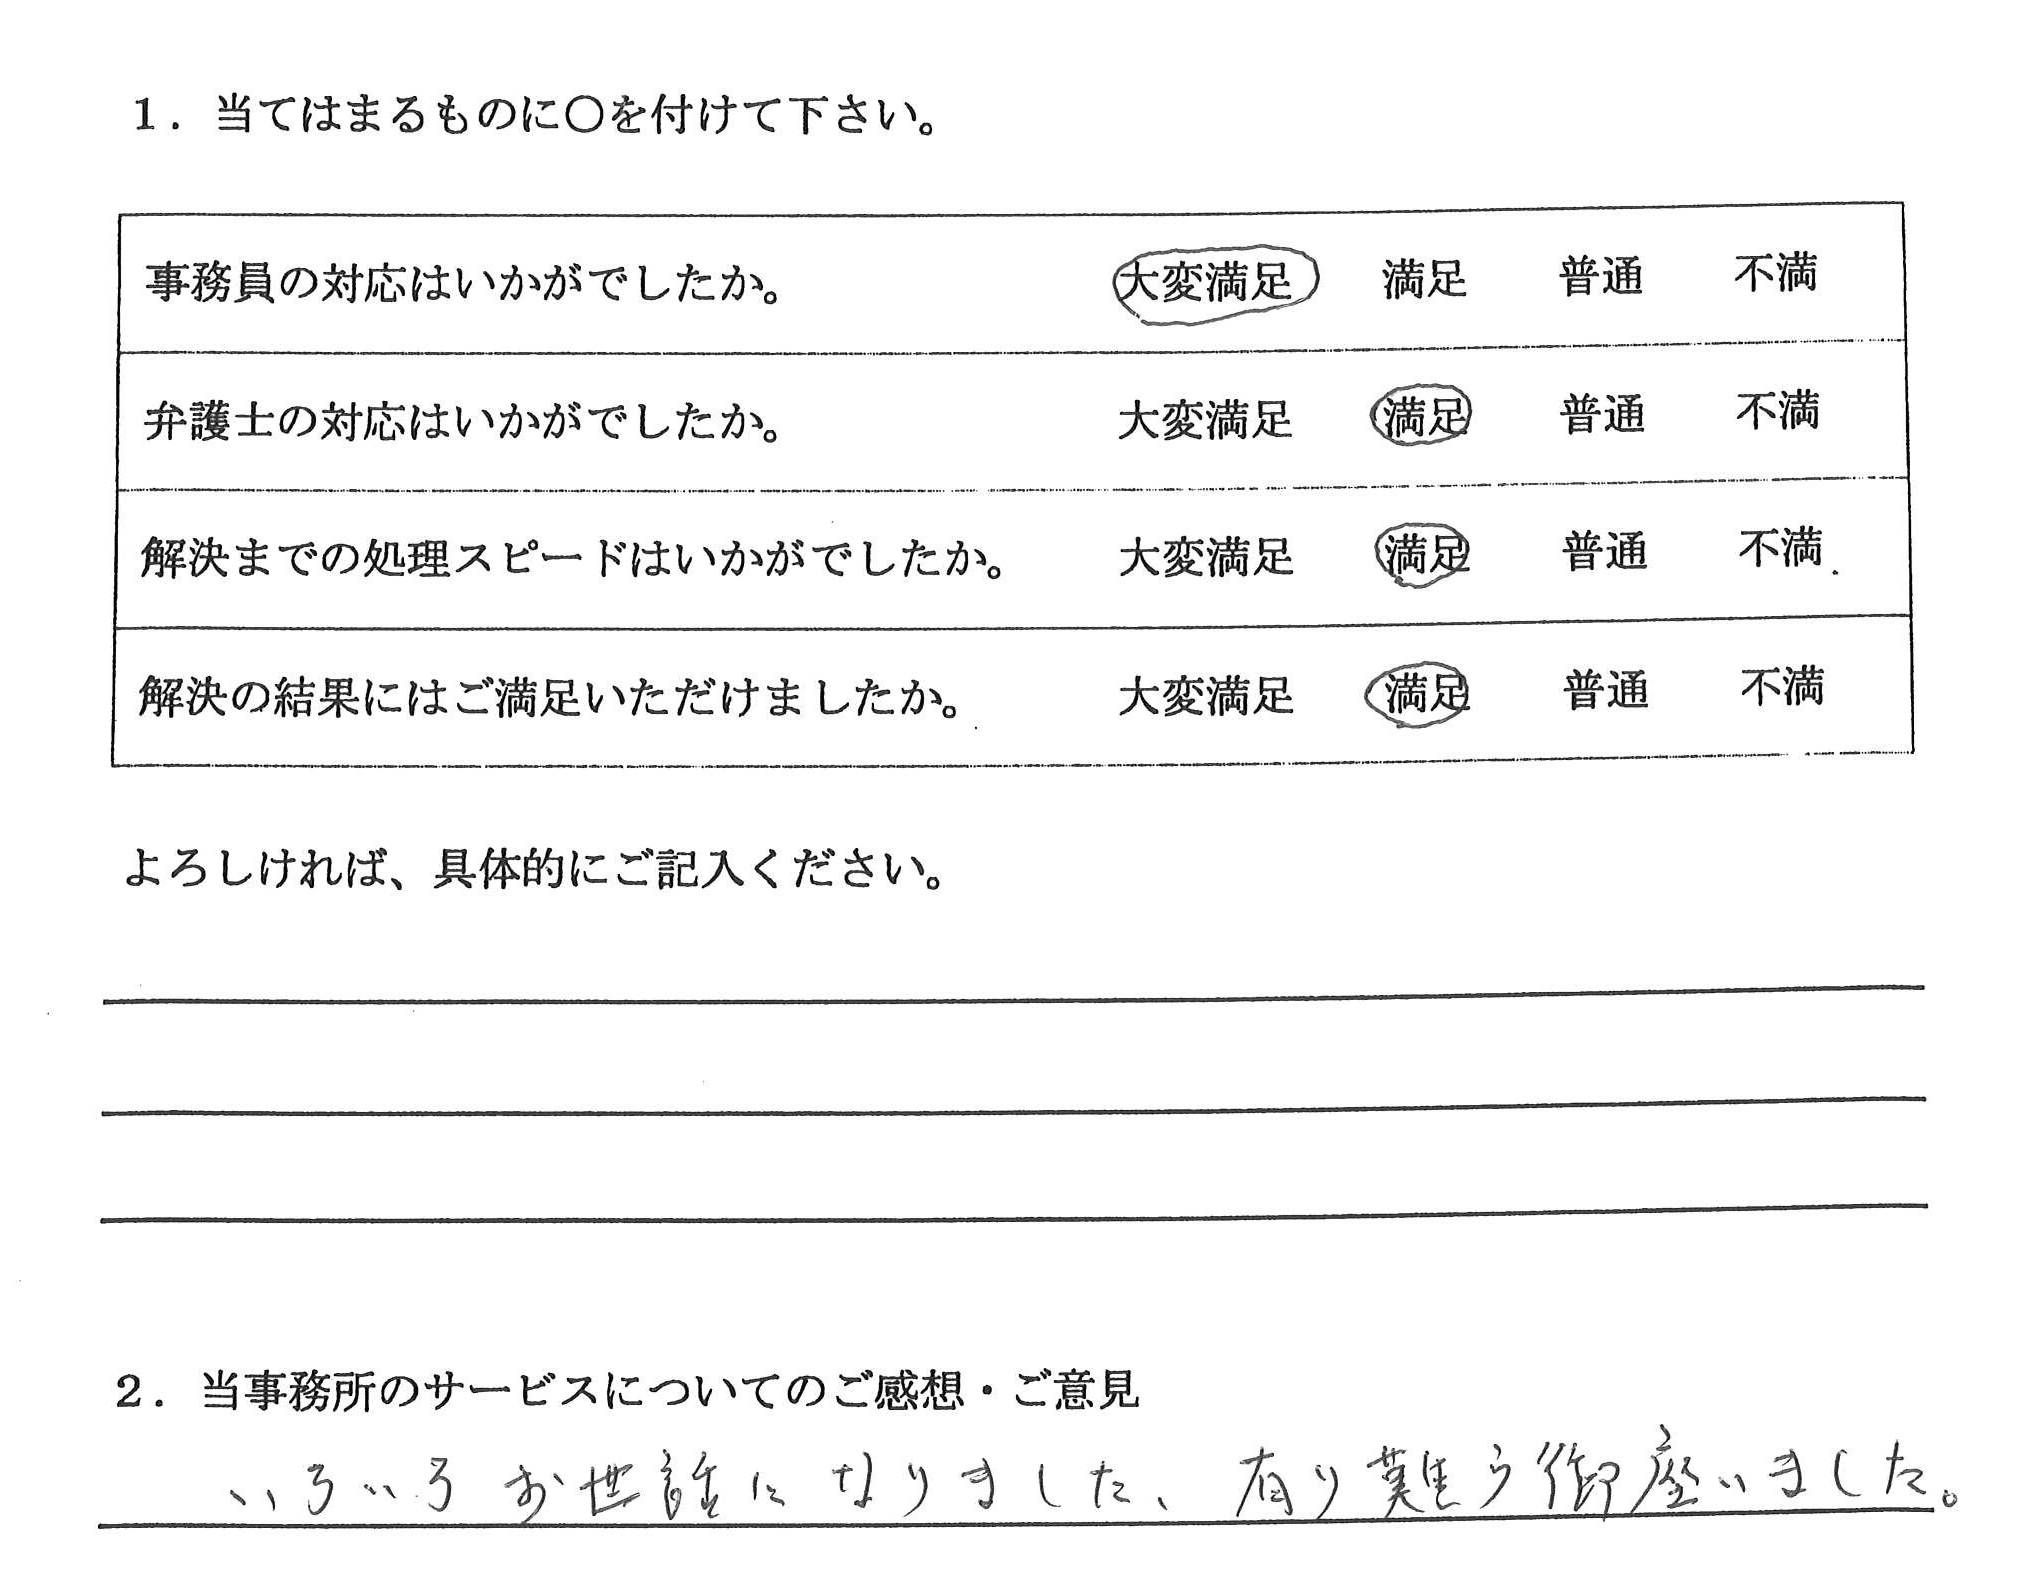 １．当てはまるものに〇を付けて下さい。
事務員の対応はいかがでしたか。 大変満足 満足 普通 不満
弁護士の対応はいかがでしたか。 大変満足 満足 普通 不満
解決までの処理スピードはいかがでしたか。 大変満足 満足 普通 不満
解決の結果にはご満足いただけましたか。 大変満足 満足 普通 不満
よろしければ、具体的にご記入ください。
２．当事務所のサービスについてのご感想・ご意見
いろいろお世話になりました、有り難う御座いました。